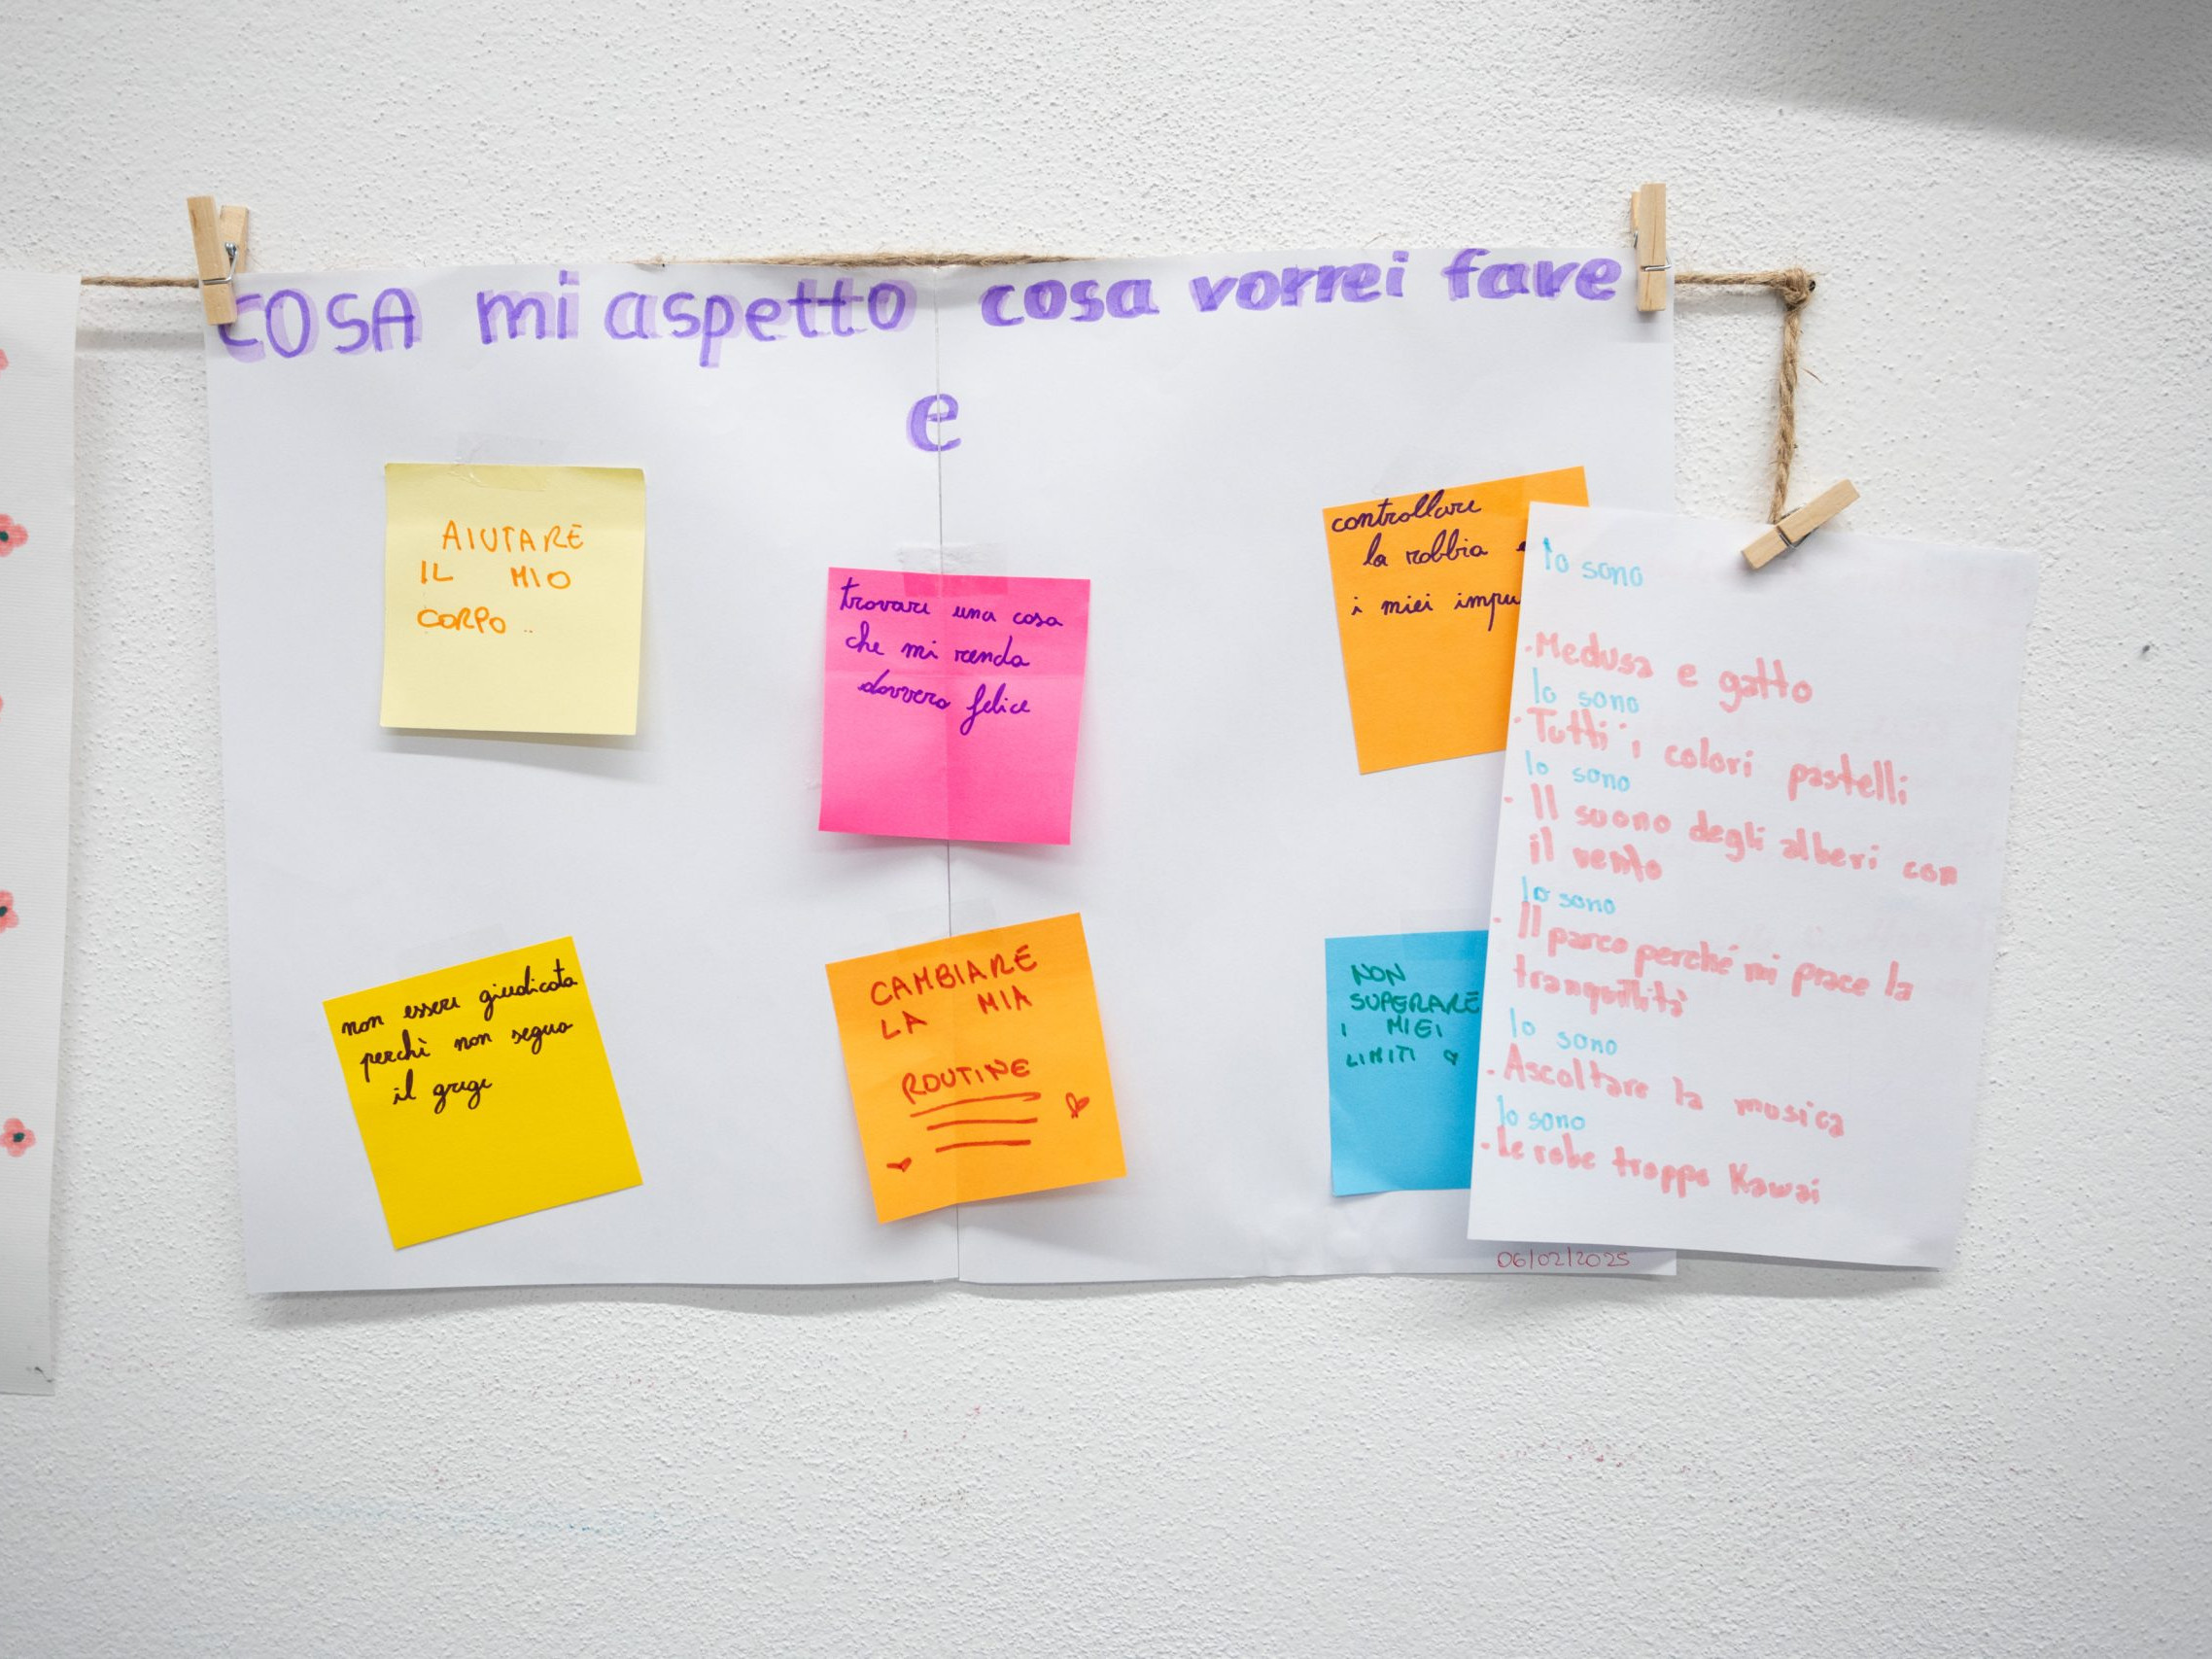 COSA mi aspetto cosa vorrei fare
e
AIUTARE
IL MIO
CORPO..
trovare una cosa
che mi renda
davvero felice
controllare
la rabbia
i miei impu
non essere giudicata
perchè non seguo
il grege
CAMBIARE
LA MIA
ROUTINE
NON
SUPERARE
I MIEI
LIMITI
Io sono
·Medusa e gatto
Io sono
·Tutti i colori pastelli
Io sono
- Il suono degli alberi con
il vento
Io sono
- Il parco perché mi piace la
tranquillità
Io sono
·Ascoltare la musica
Io sono
·Le robe troppo Kawai
06/02/2025